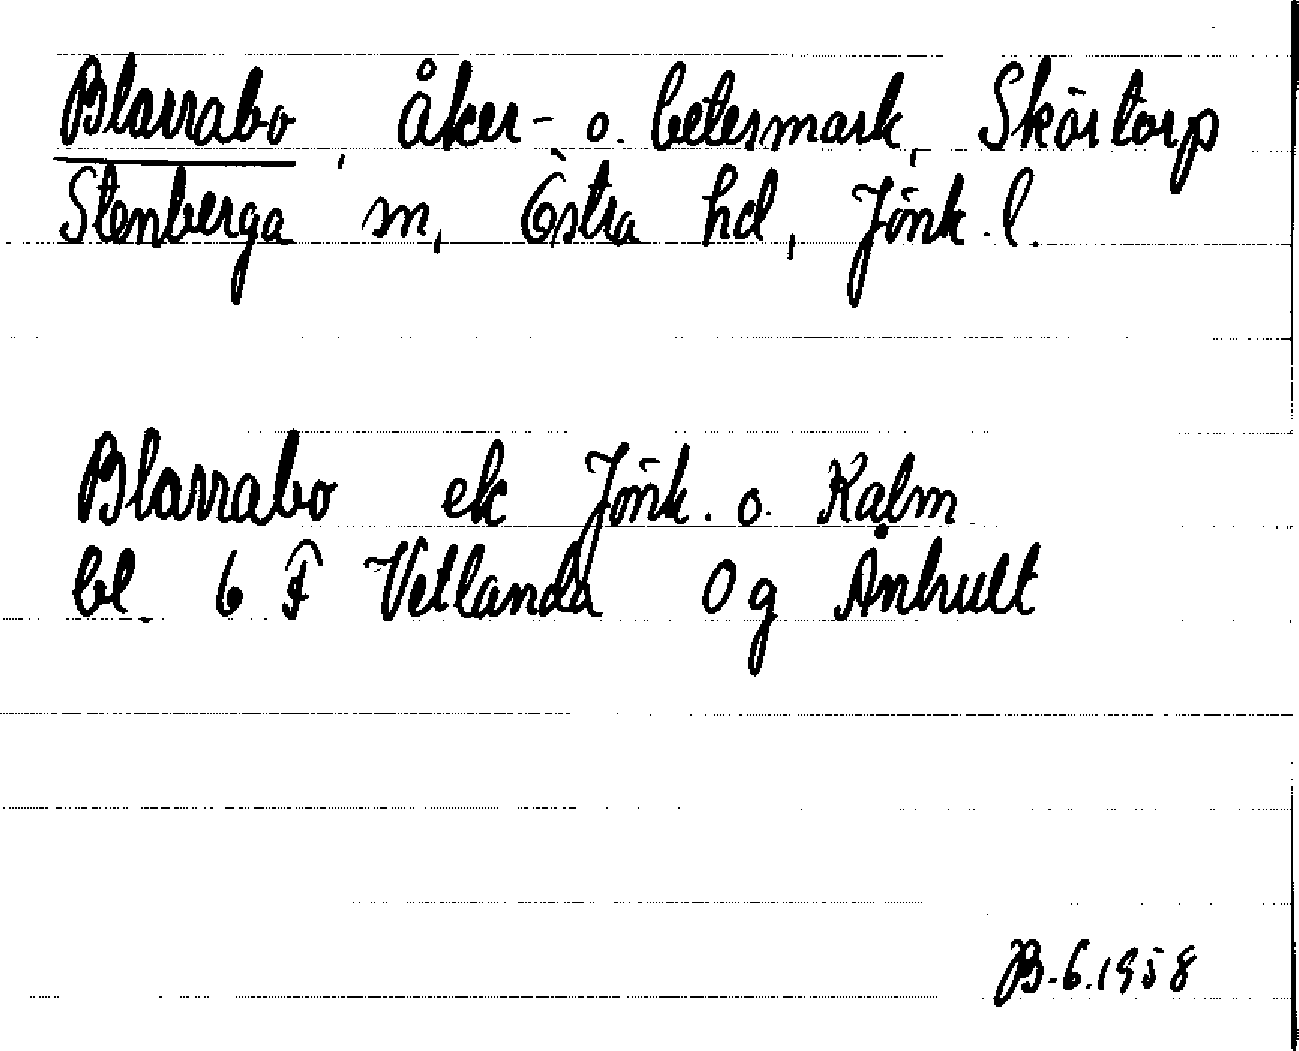 Blarrabo, åker- o. betesmark, Skörtorp
Stenberga sn, Östra hd, Jönk. l.
Blarrabo ek Jönk. o. Kalm
bl. 6 F Vetlanda 0 g Änhult
B.6.1958